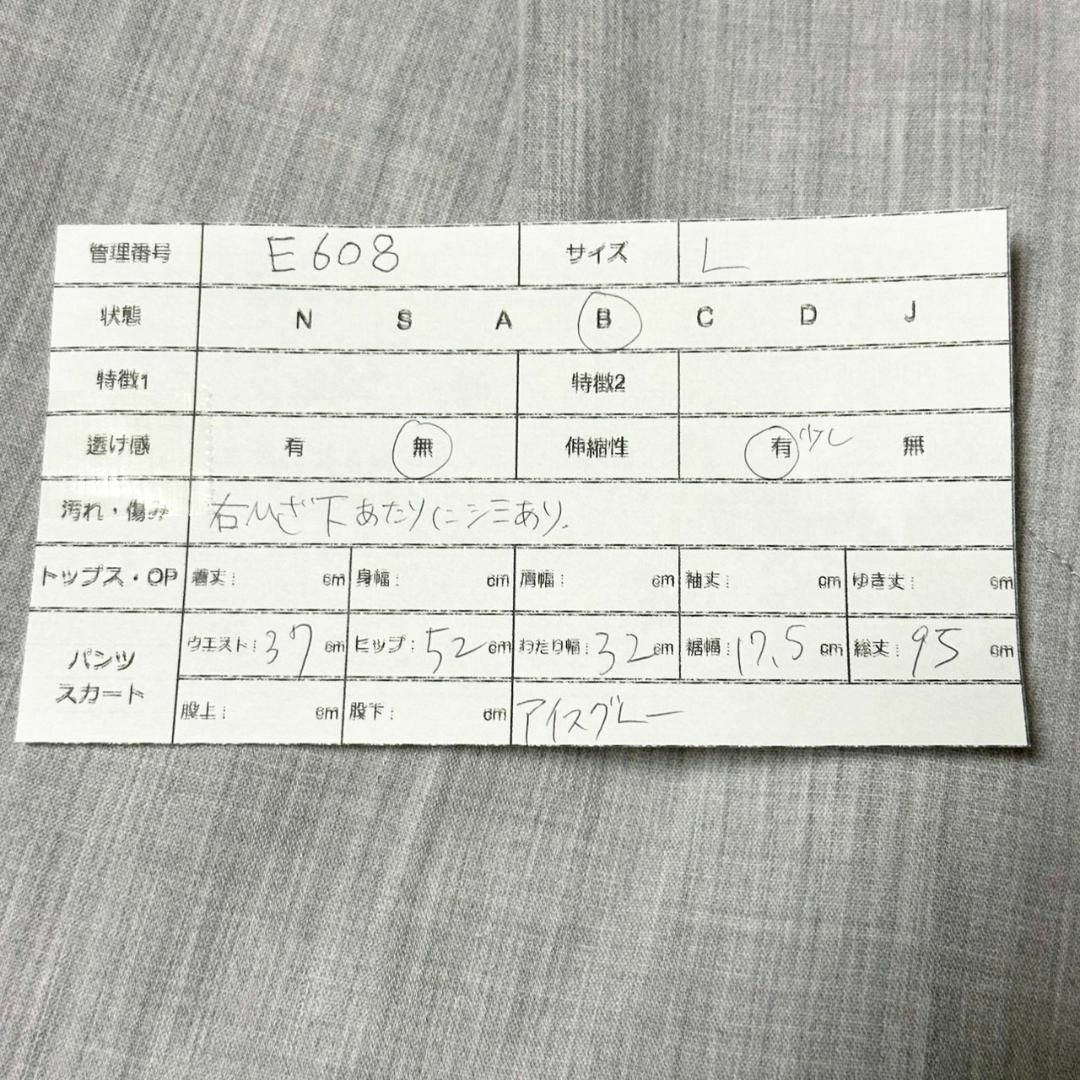 管理番号 E608 サイズ L
状態 N S A B C D J
特徴1 特徴2
透け感 有 無 伸縮性 有 少し 無
汚れ・傷み 右ひざ下あたりにシミあり.
トップス・OP 着丈: cm 身幅: cm 肩幅: cm 袖丈: cm ゆき丈: cm
パンツ スカート ウエスト: 37 cm ヒップ: 52 cm わたり幅: 32 cm 裾幅: 17.5 cm 総丈: 95 cm
股上: cm 股下: cm アイスグレー